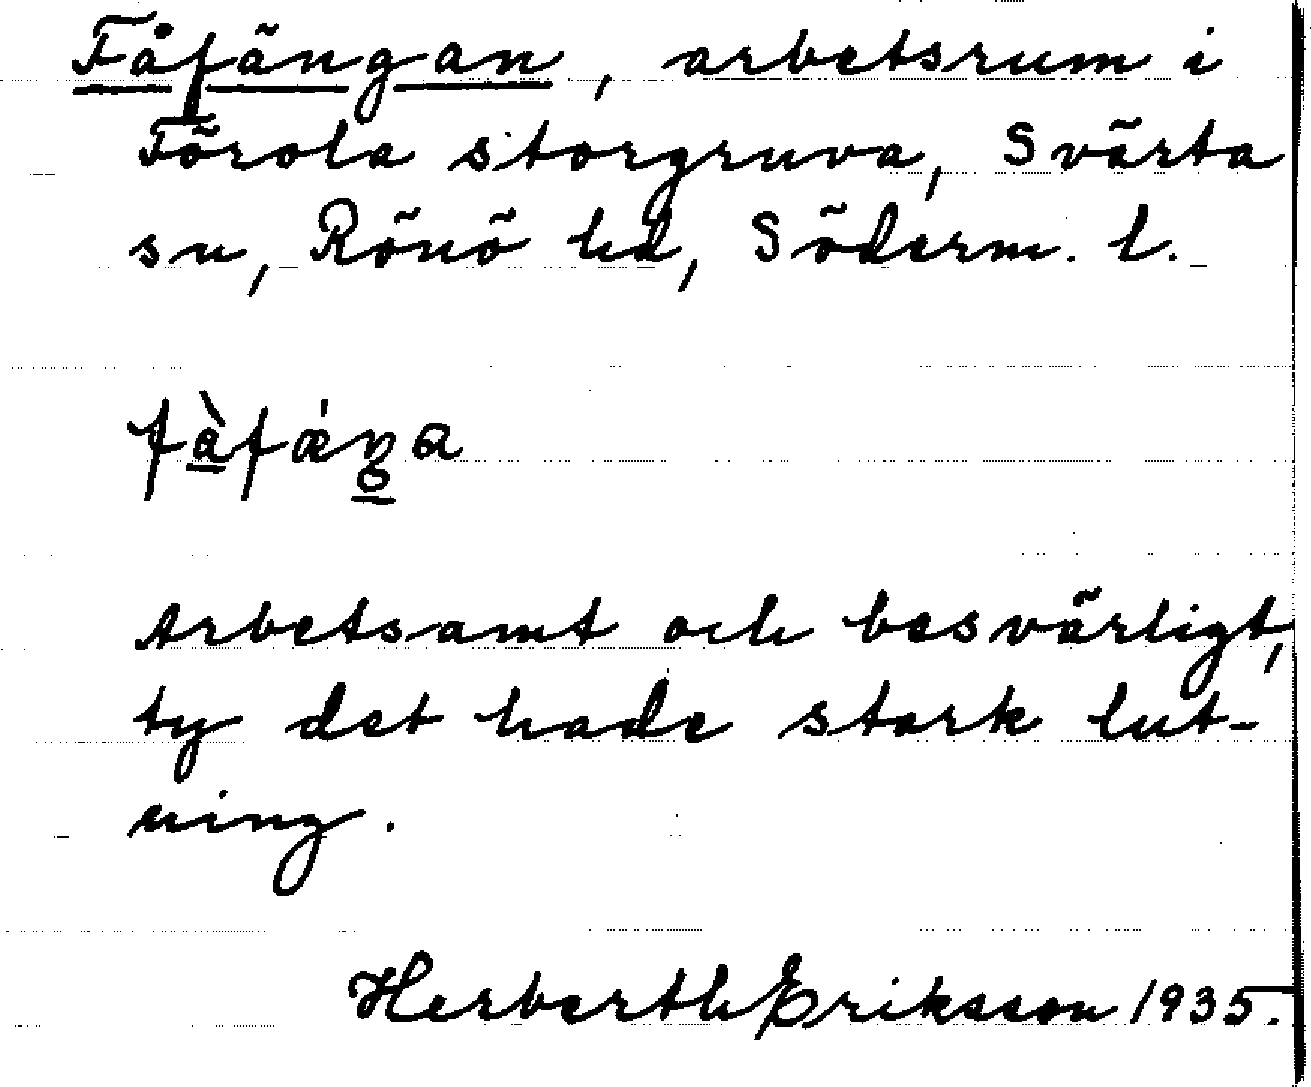 Fåfängan, arbetsrum i
Förola storgruva, Svärta
sn, Rönö hd, Söderm. l.
Arbetsamt och besvärligt,
ty det hade stark lut-
ning.
Herberth Eriksson 1935.